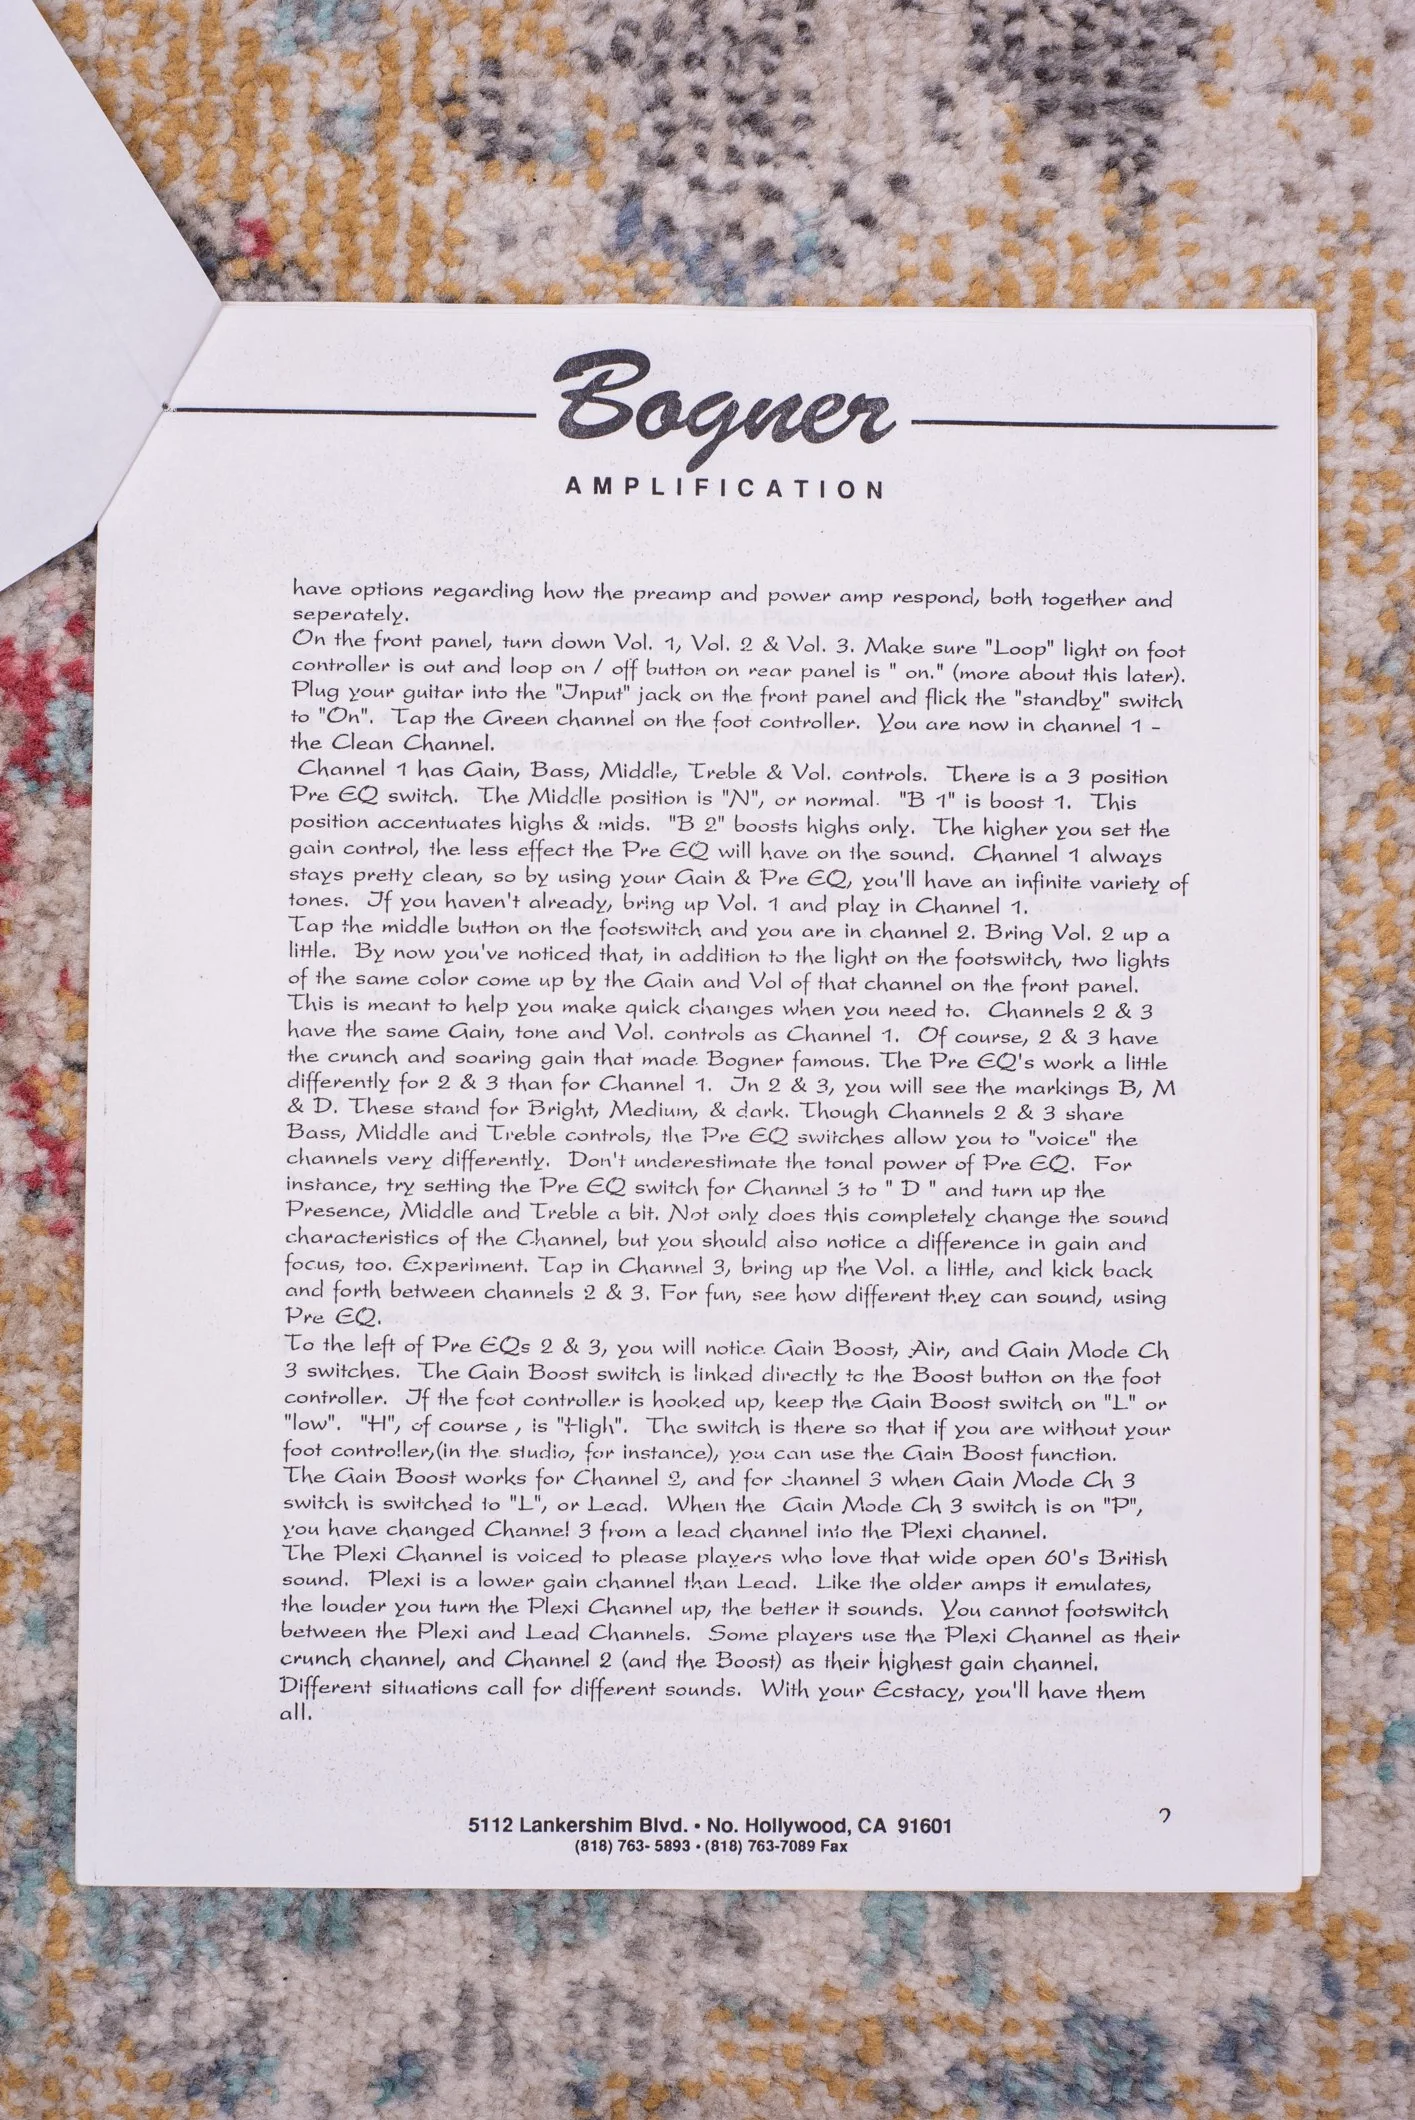 Bogner
AMPLIFICATION
have options regarding how the preamp and power amp respond, both together and
seperately.
On the front panel, turn down Vol. 1, Vol. 2 & Vol. 3. Make sure "Loop" light on foot
controller is out and loop on / off button on rear panel is " on." (more about this later).
Plug your guitar into the "Input" jack on the front panel and flick the "standby" switch
to "On". Tap the Green channel on the foot controller. You are now in channel 1 -
the Clean Channel.
Channel 1 has Gain, Bass, Middle, Treble & Vol. controls. There is a 3 position
Pre EQ switch. The Middle position is "N", or normal. "B 1" is boost 1. This
position accentuates highs & mids. "B 2" boosts highs only. The higher you set the
gain control, the less effect the Pre EQ will have on the sound. Channel 1 always
stays pretty clean, so by using your Gain & Pre EQ, you'll have an infinite variety of
tones. If you haven't already, bring up Vol. 1 and play in Channel 1.
Tap the middle button on the footswitch and you are in channel 2. Bring Vol. 2 up a
little. By now you've noticed that, in addition to the light on the footswitch, two lights
of the same color come up by the Gain and Vol of that channel on the front panel.
This is meant to help you make quick changes when you need to. Channels 2 & 3
have the same Gain, tone and Vol. controls as Channel 1. Of course, 2 & 3 have
the crunch and soaring gain that made Bogner famous. The Pre EQ's work a little
differently for 2 & 3 than for Channel 1. In 2 & 3, you will see the markings B, M
& D. These stand for Bright, Medium, & dark. Though Channels 2 & 3 share
Bass, Middle and Treble controls, the Pre EQ switches allow you to "voice" the
channels very differently. Don't underestimate the tonal power of Pre EQ. For
instance, try setting the Pre EQ switch for Channel 3 to " D " and turn up the
Presence, Middle and Treble a bit. Not only does this completely change the sound
characteristics of the Channel, but you should also notice a difference in gain and
focus, too. Experiment. Tap in Channel 3, bring up the Vol. a little, and kick back
and forth between channels 2 & 3. For fun, see how different they can sound, using
Pre EQ.
To the left of Pre EQs 2 & 3, you will notice Gain Boost, Air, and Gain Mode Ch
3 switches. The Gain Boost switch is linked directly to the Boost button on the foot
controller. If the foot controller is hooked up, keep the Gain Boost switch on "L" or
"low". "H", of course , is "High". The switch is there so that if you are without your
foot controller,(in the studio, for instance), you can use the Gain Boost function.
The Gain Boost works for Channel 2, and for channel 3 when Gain Mode Ch 3
switch is switched to "L", or Lead. When the Gain Mode Ch 3 switch is on "P",
you have changed Channel 3 from a lead channel into the Plexi channel.
The Plexi Channel is voiced to please players who love that wide open 60's British
sound. Plexi is a lower gain channel than Lead. Like the older amps it emulates,
the louder you turn the Plexi Channel up, the better it sounds. You cannot footswitch
between the Plexi and Lead Channels. Some players use the Plexi Channel as their
crunch channel, and Channel 2 (and the Boost) as their highest gain channel.
Different situations call for different sounds. With your Ecstacy, you'll have them
all.
5112 Lankershim Blvd. • No. Hollywood, CA 91601
(818) 763- 5893 • (818) 763-7089 Fax